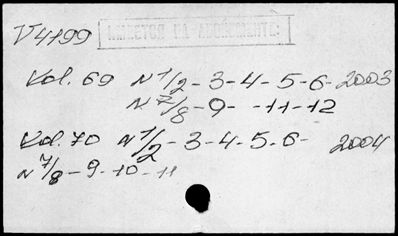 V4199
Vol. 69 N 1/2 - 3 - 4 - 5 - 6 - 2003
N 7/8 - 9 - - 11 - 12
Vol. 70 N 1/2 - 3 - 4 - 5 - 6 - 2004
N 7/8 - 9 - 10 - 11